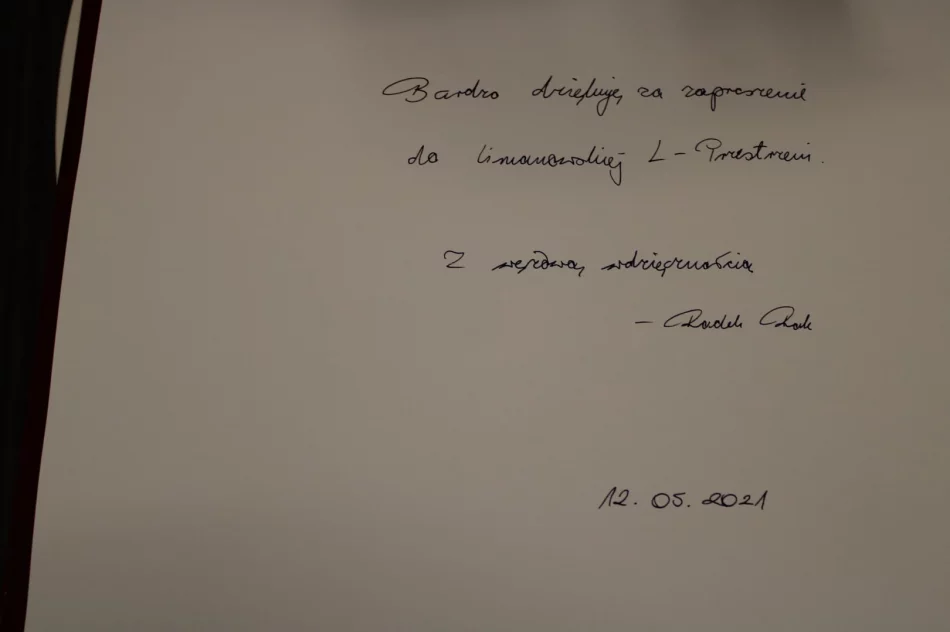 Bardzo dziękuję za zaproszenie
do limanowskiej L-Przestrzeni.
Z wężową wdzięcznością
— Radek Rak
12.05.2021